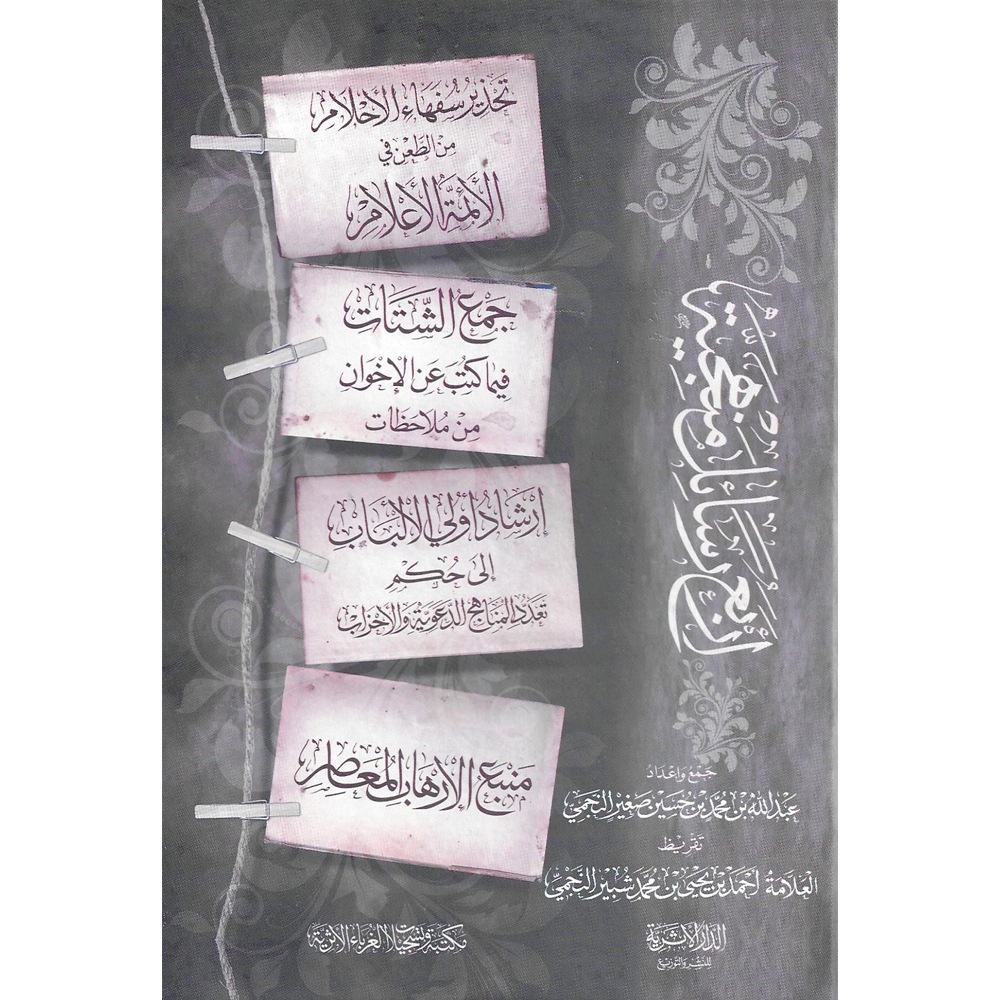 أربع رسائل منهجية
تحذير سفهاء الأحلام
من الطعن في
الأئمة الأعلام
جَمْعُ الشَّتَات
فيما كُتِبَ عَن الإِخْوَان
مِنْ مُلاحَظَات
إِرْشَادُ أُولي الألْبَاب
إلى حُكْمِ
تَعَدُّد المَنَاهِج الدَّعَوِيَّة وَالأَحْزَاب
مَنبَع الإِرْهَاب المُعَاصِر
جَمْعُ وَإِعْدَادُ
عَبْد اللّٰه بن محمد بن حُسَيْن صَغِير النَّجمِي
تَقْرِيظ
العَلَّامَة أَحْمَد بن يَحْيَى بن مُحَمَّد شَبِير النَّجْمِيّ
الدَّارُ الأَثَرِيَّة
للنَّشْرِ وَالتَّوْزِيْعِ
مكتبة وتسجيلات الغرباء الأثرية